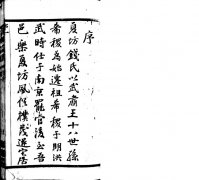 序
夏坊錢氏以武肅王十八世孫
希稷為始遷祖希稷于明洪
武時仕于南京罷官後至吾
邑樂夏坊風俗樸茂遂家焉